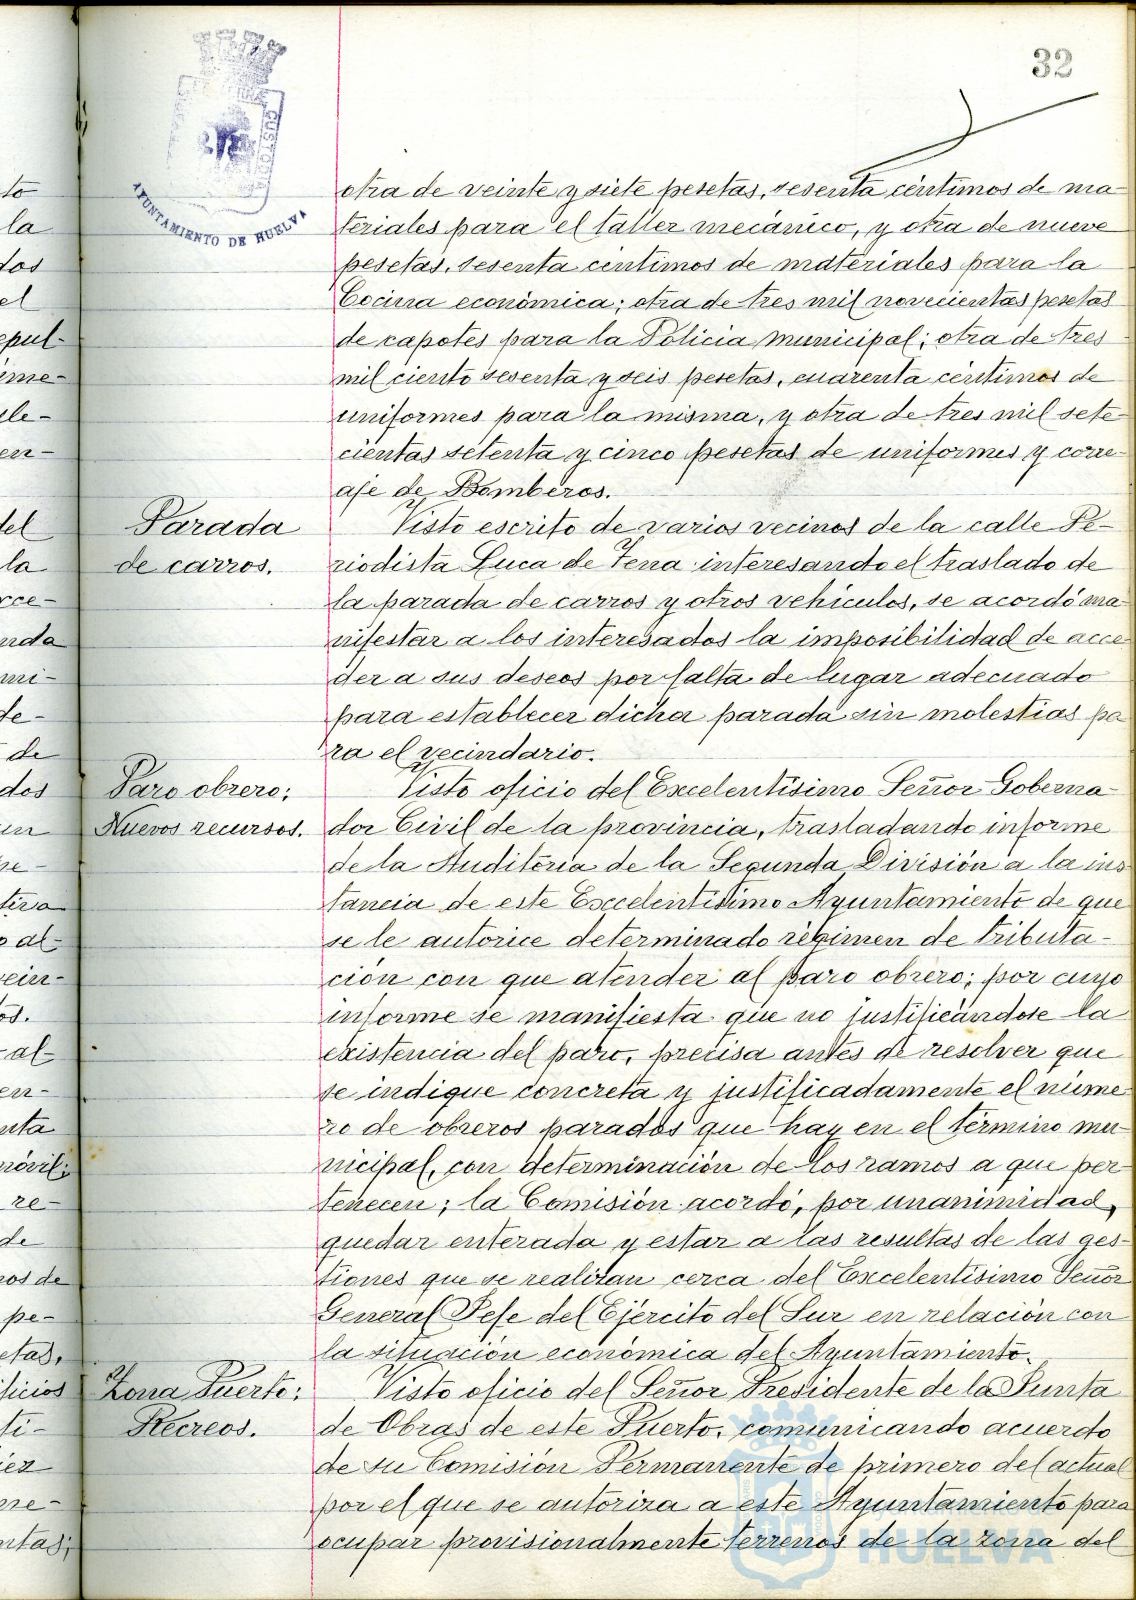 32
AYUNTAMIENTO DE HUELVA
otra de veinte y siete pesetas, sesenta céntimos de ma-
teriales para el taller mecánico, y otra de nueve
pesetas, sesenta céntimos de materiales para la
Cocina económica; otra de tres mil novecientas pesetas
de capotes para la Policia Municipal; otra de tres
mil ciento sesenta y seis pesetas, cuarenta céntimos de
uniformes para la misma, y otra de tres mil sete-
cientas setenta y cinco pesetas de uniformes y corre-
aje de Bomberos.
Parada
de carros.
Visto escrito de varios vecinos de la calle Pe-
riodista Luca de Tena interesando el traslado de
la parada de carros y otros vehículos, se acordó ma
nifestar a los interesados la imposibilidad de acce
der a sus deseos por falta de lugar adecuado
para establecer dicha parada sin molestias pa
ra el vecindario.
Paro obrero:
Nuevos recursos.
Visto oficio del Excelentísimo Señor Goberna-
dor Civil de la provincia, trasladando informe
de la Auditoria de la Segunda División a la ins
tancia de este Excelentísimo Ayuntamiento de que
se le autorice determinado régimen de tributa-
ción con que atender al paro obrero; por cuyo
informe se manifiesta que no justificándose la
existencia del paro, precisa antes de resolver que
se indique concreta y justificadamente el núme
ro de obreros parados que hay en el término mu-
nicipal, con determinación de los ramos a que per
tenecen; la Comisión acordó, por unanimidad,
quedar enterada y estar a las resultas de las ges-
tiones que se realizan cerca del Excelentísimo Señor
General Jefe del Ejército del Sur en relación con
la situación económica del Ayuntamiento.
Zona Puerto:
Recreos.
Visto oficio del Señor Presidente de la Junta
de Obras de este Puerto, comunicando acuerdo
de su Comisión Permanente de primero del actual
por el que se autoriza a este Ayuntamiento para
ocupar provisionalmente terrenos de la zona del
Ayuntamiento de
HUELVA
to
la
dos
el
epul-
eme-
ule-
en-
del
la
rce-
nda
mi-
de-
de
dos
un
ne-
tira
o al-
vein-
os.
al-
en-
nta
móvil;
re-
de
nos de
pe-
etas,
ficios
ti-
iez
me-
ntas;